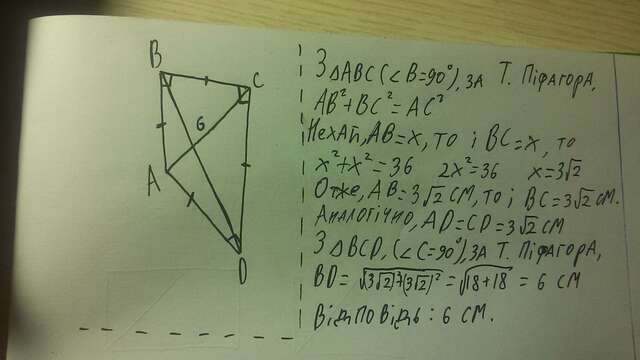 B
C
6
A
D
З △ABC (∠B=90°), за т. Піфагора,
AB²+BC²=AC²
Нехай, AB=x, то і BC=x, то
x²+x²=36 2x²=36 x=3√2
Отже, AB=3√2 см, то і BC=3√2 см.
Аналогічно, AD=CD=3√2 см
З △BCD, (∠C=90°), за т. Піфагора,
BD=√(3√2)²+(3√2)²=√18+18 = 6 см
Відповідь: 6 см.